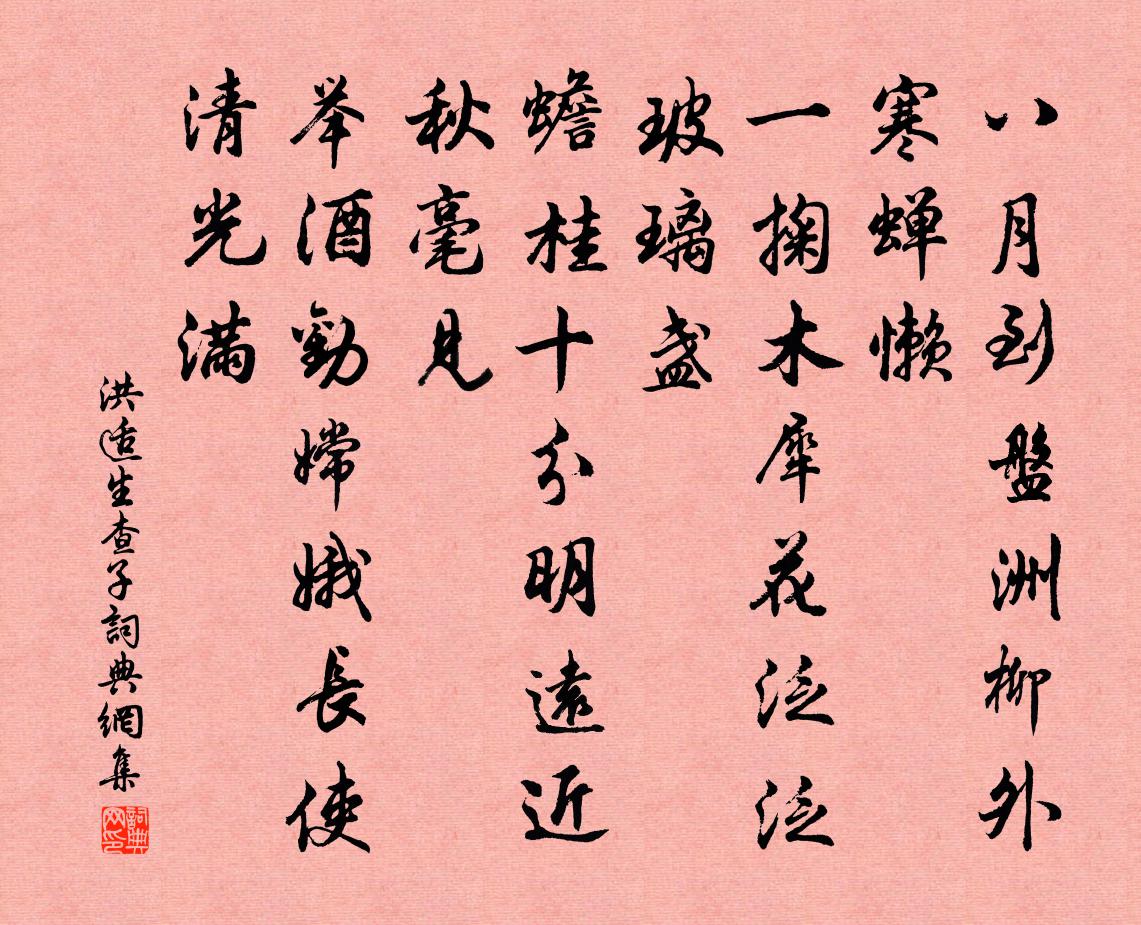 八月到盤洲柳外
寒蝉懒
一掬木犀花泛泛
玻璃盏
蟾桂十分明遠近
秋毫見
举酒勸嫦娥長使
清光滿
洪适生查子詞典網集
詞典网印